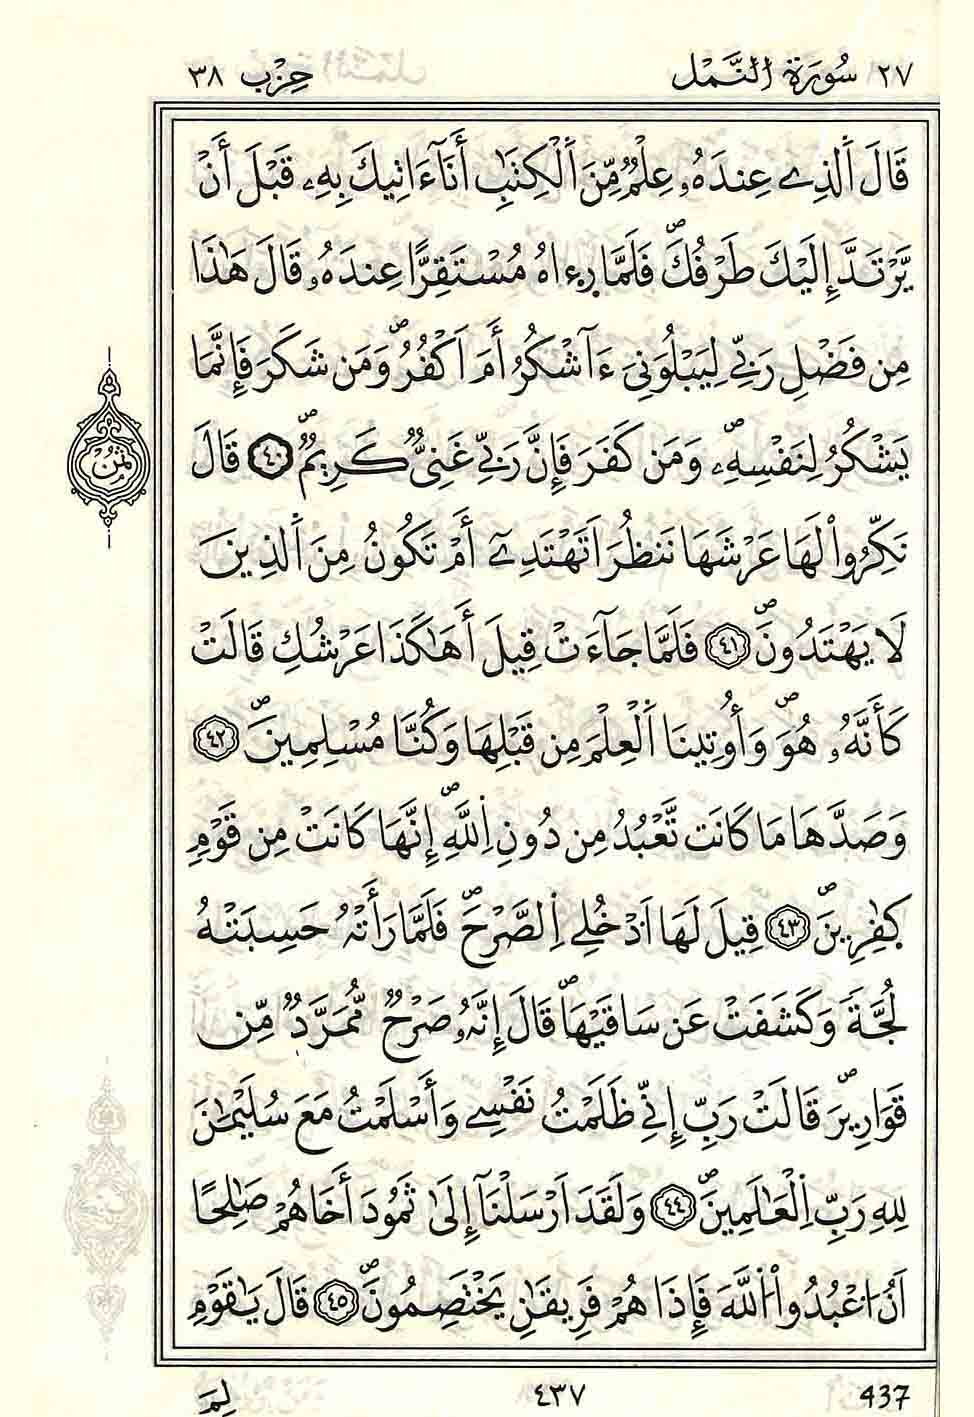 ٢٧ سُورَةُ النَّمْل حِزْب ٣٨
قَالَ اَ۬لذِے عِندَهُۥ عِلْمٞ مِّنَ اَ۬لْكِتَٰبِ أَنَآ ءَاتِيكَ بِهِۦ قَبْلَ أَنْ
يَّرْتَدَّ إِلَيْكَ طَرْفُكَۖ فَلَمَّا ر۪ء۪اهُ مُسْتَقِرّاً عِندَهُۥ قَالَ هَٰذَا
مِن فَضْلِ رَبِّے لِيَبْلُوَنِيَ ءَآشْكُرُ أَمَ اَكْفُرُۖ وَمَن شَكَرَ فَإِنَّمَا
يَشْكُرُ لِنَفْسِهِۦۖ وَمَن كَفَرَ فَإِنَّ رَبِّے غَنِيّٞ كَرِيمٞۖ ٤٠ قَالَ
نَكِّرُواْ لَهَا عَرْشَهَا نَنظُرَ اَتَهْتَدِےٓ أَمْ تَكُونُ مِنَ اَ۬لذِينَ
لَا يَهْتَدُونَۖ ٤١ فَلَمَّا جَآءَتْ قِيلَ أَهَٰكَذَا عَرْشُكِ قَالَتْ
كَأَنَّهُۥ هُوَۖ وَأُوتِينَا اَ۬لْعِلْمَ مِن قَبْلِهَا وَكُنَّا مُسْلِمِينَۖ ٤٢
وَصَدَّهَا مَا كَانَت تَّعْبُدُ مِن دُونِ اِ۬للَّهِۖ إِنَّهَا كَانَتْ مِن قَوْمٖ
كٰ۪فِرِينَۖ ٤٣ قِيلَ لَهَا اَ۟دْخُلِے اِ۬لصَّرْحَۖ فَلَمَّا رَأَتْهُ حَسِبَتْهُ
لُجَّةٗ وَكَشَفَتْ عَن سَاقَيْهَاۖ قَالَ إِنَّهُۥ صَرْحٞ مُّمَرَّدٞ مِّن
قَوَارِيرَۖ قَالَتْ رَبِّ إِنِّے ظَلَمْتُ نَفْسِے وَأَسْلَمْتُ مَعَ سُلَيْمَٰنَ
لِلهِ رَبِّ اِ۬لْعَٰلَمِينَۖ ٤٤ وَلَقَدَ اَرْسَلْنَآ إِلَىٰ ثَمُودَ أَخَاهُمْ صَٰلِحاً
اَنُ اُ۟عْبُدُواْ اُ۬للَّهَ فَإِذَا هُمْ فَرِيقَٰنِ يَخْتَصِمُونَۖ ٤٥ قَالَ يَٰقَوْمِ
ثُمُن
437 ٤٣٧ لِمَ